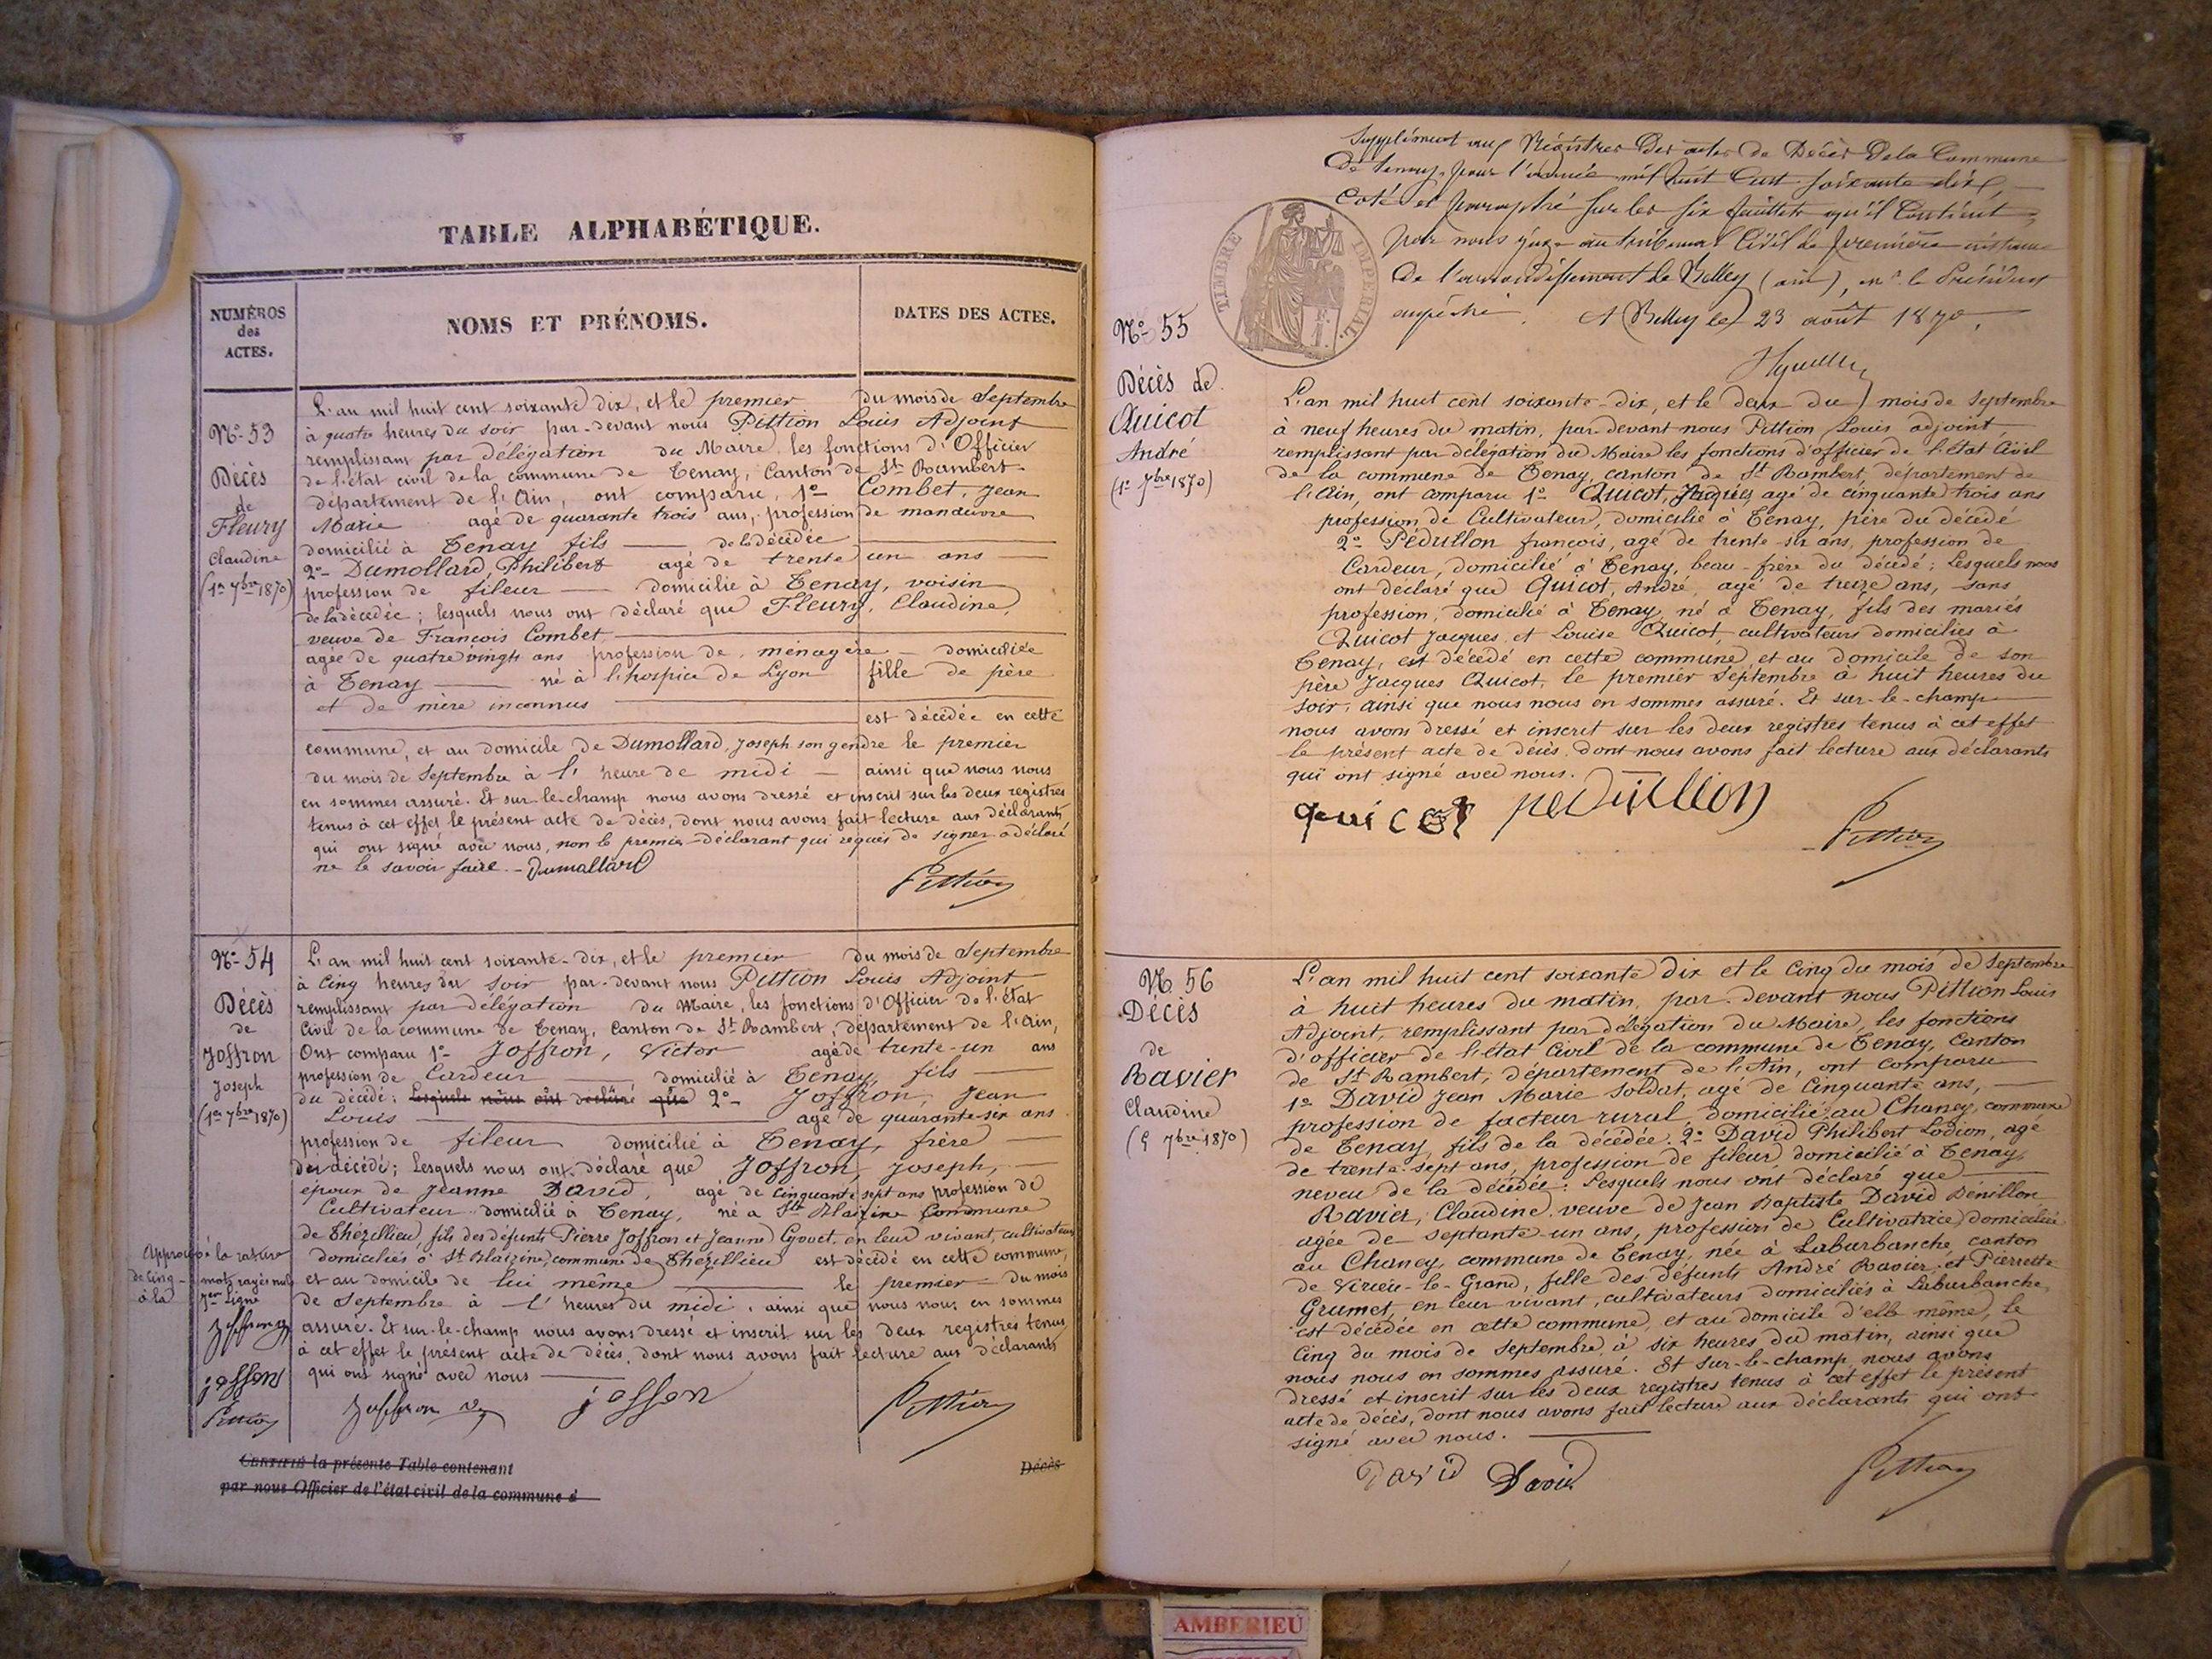 TABLE ALPHABÉTIQUE.
NUMÉROS
des
ACTES.
NOMS ET PRÉNOMS.
DATES DES ACTES.
No 53
Décès
de
Fleury
Claudine
(1er 7bre 1870)
L'an mil huit cent soixante dix, et le premier du mois de Septembre
à quatre heures du soir par-devant nous Pittion Louis Adjoint
remplissant par délégation du Maire les fonctions d'Officier
de l'état civil de la commune de Tenay, Canton de St Rambert
département de l'Ain, ont comparu, 1o Combet, Jean
Marie agé de quarante trois ans, profession de manœuvre
domicilié à Tenay fils de la décédée
2o Dumollard, Philibert agé de trente un ans
profession de fileur domicilié à Tenay, voisin
de la décédée; lesquels nous ont déclaré que Fleury, Claudine,
veuve de François Combet
agée de quatre vingts ans profession de ménagère domiciliée
à Tenay né à l'hospice de Lyon fille de père
et de mère inconnus
est décédée en cette
commune, et au domicile de Dumollard, Joseph son gendre le premier
du mois de Septembre à l' heure de midi ainsi que nous nous
en sommes assuré. Et sur-le-champ nous avons dressé et inscrit sur les deux registres
tenus à cet effet le présent acte de décès, dont nous avons fait lecture aux déclarants
qui ont signé avec nous, non le premier déclarant qui requis de signer a déclaré
ne le savoir faire. - Dumollard
Pittion
No 54
Décès
de
Joffron
Joseph
(1er 7bre 1870)
L'an mil huit cent soixante-dix, et le premier du mois de Septembre
à Cinq heures du soir par-devant nous Pittion Louis Adjoint
remplissant par délégation du Maire, les fonctions d'Officier de l'état
Civil de la commune de Tenay, Canton de St Rambert, département de l'Ain,
Ont comparu 1o Joffron, Victor agé de trente-un ans
profession de Cardeur domicilié à Tenay, fils
du décédé; Lesquels nous ont déclaré que 2o Joffron, Jean
Louis agé de quarante six ans
profession de fileur domicilié à Tenay, frère
du décédé; Lesquels nous ont déclaré que Joffron, Joseph,
époux de Jeanne David, agé de cinquante sept ans profession de
Cultivateur domicilié à Tenay, né à St Blaizine Commune
de Thézillieu, fils des défunts Pierre Joffron et Jeanne Gyvet, en leur vivant, cultivateurs
domiciliés à St Blaizine, commune de Thézillieu est décédé en cette commune,
et au domicile de lui même le premier du mois
de Septembre à l' heures du midi, ainsi que nous nous en sommes
assuré. Et sur-le-champ nous avons dressé et inscrit sur les deux registres tenus
à cet effet le présent acte de décès, dont nous avons fait lecture aux déclarants
qui ont signé avec nous
Approuvé la rature
de cinq mots rayés nuls
à la 7em ligne
Joffron
joffon
Pittion
Joffron
joffon
Pittion
Certifié la présente Table contenant
par nous Officier de l'état civil de la commune d
Décès
Supplément aux Régistres des actes de Décès de la Commune
de tenay, pour l'année mil huit cent soixante dix,
Coté et paraphé sur les six feuillets qu'il Contient,
par nous juge au tribunal Civil de première instance
de l'arrondissement de Belley (ain), mr le Président
empêché. A Belley le 23 août 1870.
TIMBRE IMPÉRIAL
No 55
Décès de
Quicot
André
(1er 7bre 1870)
L'an mil huit cent soixante-dix, et le deux du mois de Septembre
à neuf heures du matin, par-devant nous Pittion Louis adjoint
remplissant par délégation du Maire les fonctions d'officier de l'état Civil
de la commune de Tenay, canton de St Rambert, département de
l'Ain, ont comparu 1o Quicot, Jacques, agé de cinquante trois ans
profession de Cultivateur, domicilié à Tenay, père du décédé
2o Pédullon françois, agé de trente six ans, profession de
Cardeur, domicilié à Tenay, beau-frère du décédé; Lesquels nous
ont déclaré que Quicot, André, agé de treize ans, sans
profession, domicilié à Tenay, né à Tenay, fils des mariés
Quicot Jacques, et Louise Quicot, cultivateurs domiciliés à
Tenay, est décédé en cette commune, et au domicile de son
père Jacques Quicot, le premier Septembre à huit heures du
soir, ainsi que nous nous en sommes assuré. Et sur-le-champ
nous avons dressé et inscrit sur les deux registres tenus à cet effet
le présent acte de décès, dont nous avons fait lecture aux déclarants
qui ont signé avec nous.
quicot peduillon
Pittion
No 56
Décès
de
Ravier
Claudine
(5 7bre 1870)
L'an mil huit cent soixante dix et le Cinq du mois de Septembre
à huit heures du matin, par-devant nous Pittion Louis
Adjoint, remplissant par délégation du Maire, les fonctions
d'officier de l'état Civil de la commune de Tenay, Canton
de St Rambert, département de l'Ain, ont comparu
1o David Jean Marie Soldat, agé de Cinquante ans,
profession de facteur rural, domicilié au Chaney, commune
de Tenay, fils de la décédée. 2o David Philibert Lodion, agé
de trente-sept ans, profession de fileur, domicilié à Tenay,
neveu de la décédée; Lesquels nous ont déclaré que
Ravier, Claudine, veuve de Jean Baptiste David Pénillon
agée de septante-un ans, profession de Cultivatrice, domiciliée
au Chaney, commune de Tenay, née à Laburbanche, canton
de Virieu-le-Grand, fille des défunts André Ravier et Pierrette
Grumet, en leur vivant, cultivateurs domiciliés à Laburbanche,
est décédée en cette commune, et au domicile d'elle même, le
Cinq du mois de Septembre, à six heures du matin, ainsi que
nous nous en sommes assuré. Et sur-le-champ, nous avons
dressé et inscrit sur les deux registres tenus à cet effet le présent
acte de décès, dont nous avons fait lecture aux déclarants qui ont
signé avec nous.
David David
Pittion
AMBERIEU